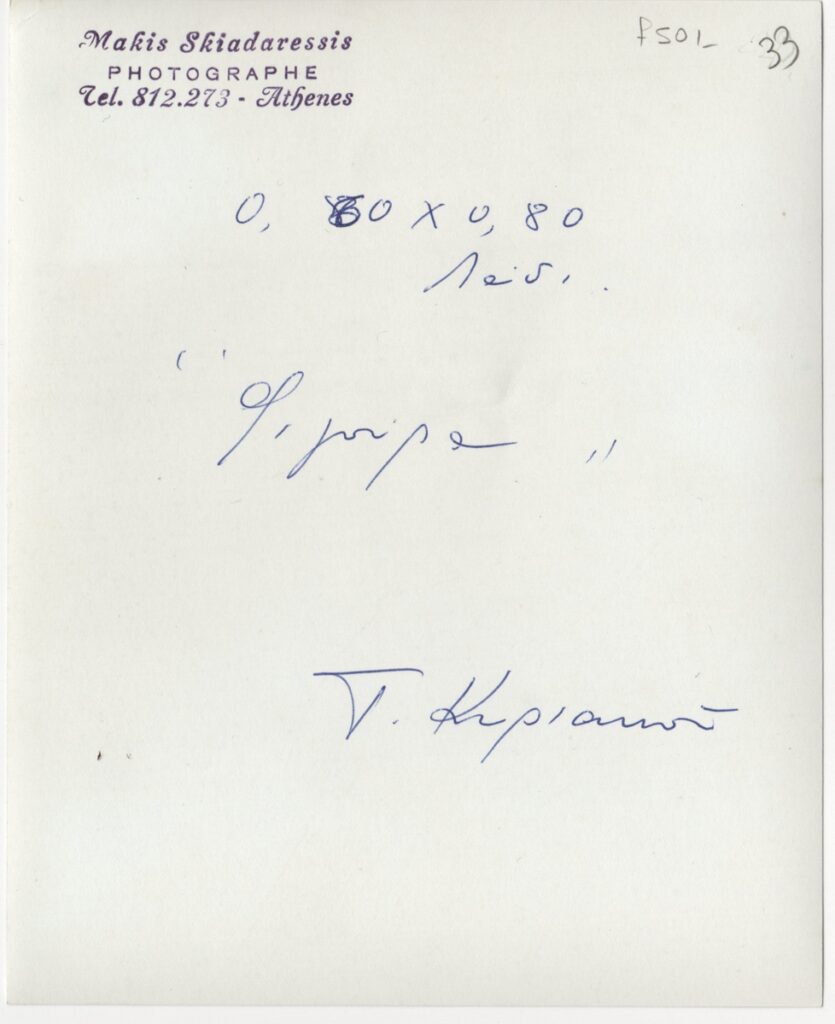 Makis Skiadaressis
PHOTOGRAPHE
Tel. 812.273 - Athenes
33
0,60 X 0,80
Λάδι.
"Φιγούρα"